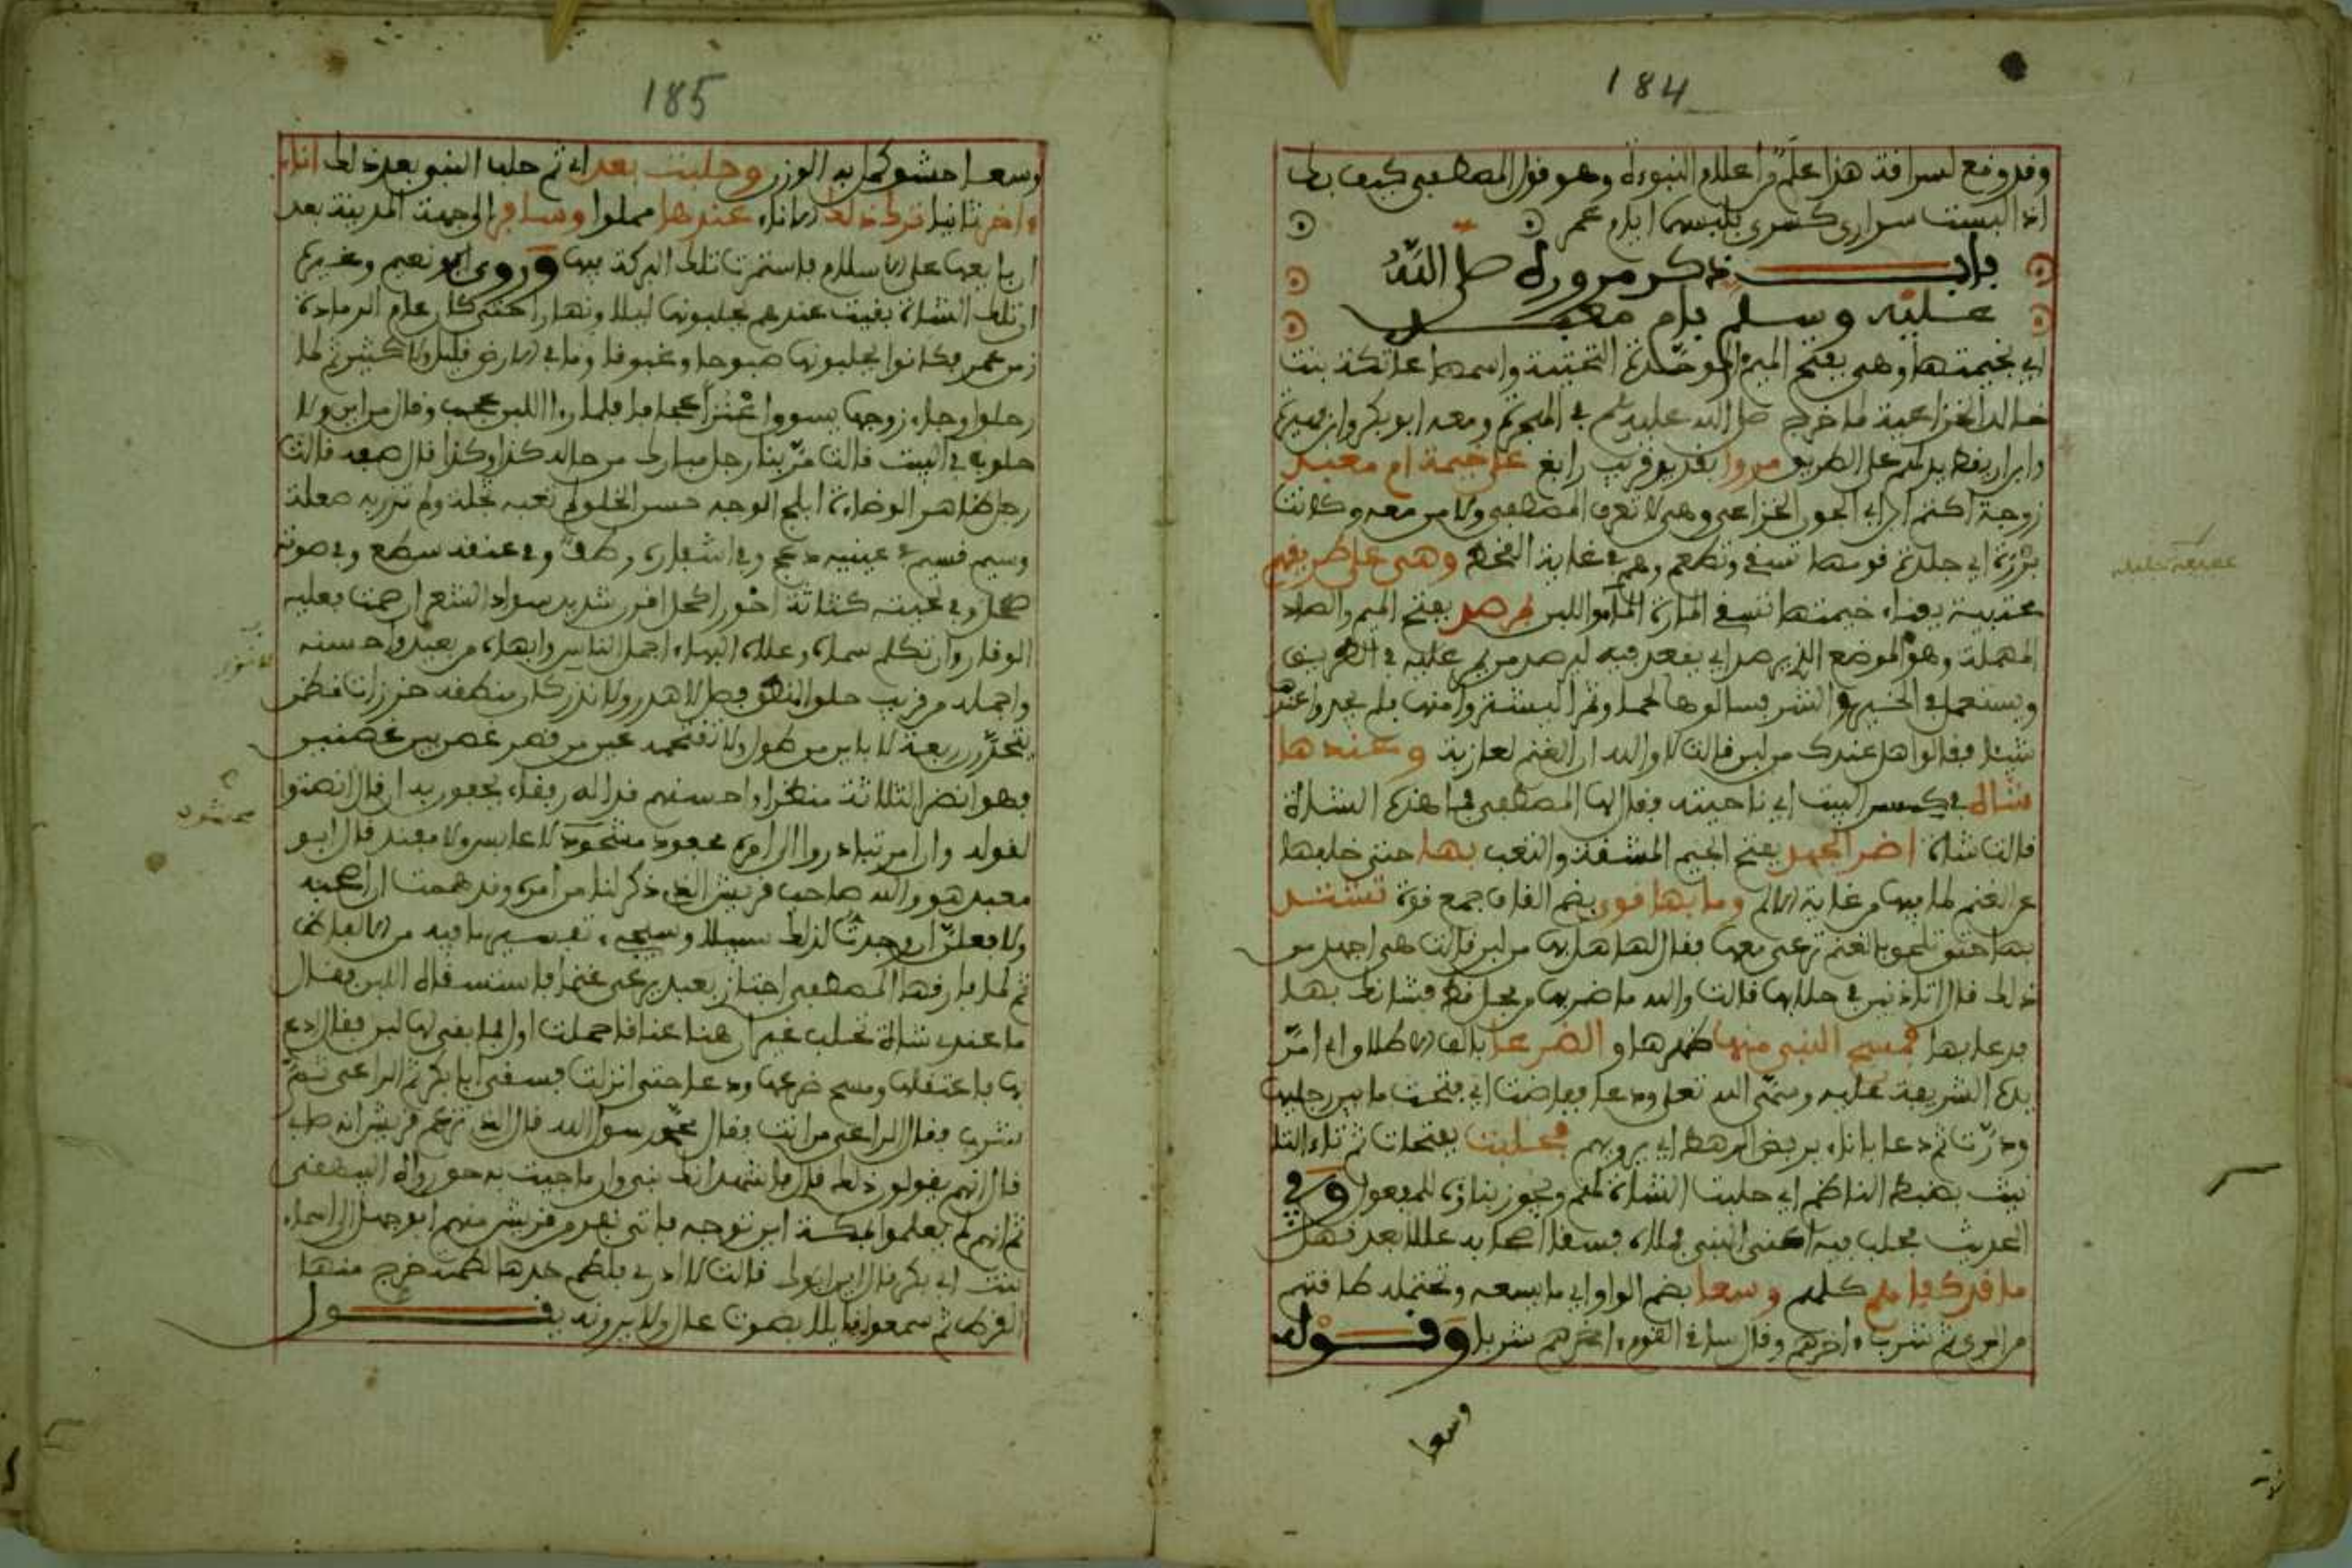 184
وقد وقع لسراقة هذا علم من أعلام النبوءة وهو قول المصطفى كيف بك
اذا لبست سواري كسرى فلبسهما ايام عمر
باب ذكر مروره صلى الله
عليه وسلم بام معبد
اي بخيمتها وهي بفتح الميم الموحدة التحتية واسمها عاتكة بنت
خالد الخزاعية لما خرج صلى الله عليه وسلم في الهجرة ومعه ابو بكر وابن فهيرة
وابن اريقط يدلهم على الطريق مروا بقديد قريب رابغ على خيمة ام معبد
زوجة اكثم ابن ابي الجون الخزاعي وهي لا تعرف المصطفى ولا من معه وكانت
برزة اي جلدة قومها تسقي وتطعم وهم في غاية القحط وهي على طريقهم
محتبية بفناء خيمتها تسقي المارة الماء واللبن بمرصد بفتح الميم والصاد
المهملة وهو الموضع الذي يرصد اي يقعد فيه ليرصد من يمر عليه في الطريق
ويستعمل في الخير والشر فسألوها لحما وتمرا ليشتروا منها فلم يجدوا عندها
شيئا فقالوا هل عندك من لبن قالت لا والله ان الغنم لعازبة وعندها
شاة في كسر البيت اي ناحيته فقال لها المصطفى ما هذه الشاة
قالت شاة اضر الجهد بفتح الجيم المشقة والتعب بها حتى خلفها
عن الغنم لما بها من غاية الالم وما بها قوى بضم القاف جمع قوة تشتد
بها حتى تلحق بالغنم ترعى معها فقال لها هل بها من لبن قالت هي اجهد من
ذلك قال اتاذنين في حلابها قالت والله ما ضربها من فحل قط فشانك بها
فدعا بها فمسح النبي منها ظهرها والضرعا بالف الاطلاق اي امر
يده الشريفة عليه وسمى الله تعلى ودعا ففاضت اي فتحت ما بين رجليها
ودرت ثم دعا باناء يربض الرهط اي يرويهم فحلبت بفتحات ثم تاء التا
نيث بضبط الناظم اي حلبت الشاة لهم ويجوز بناؤه للمفعول وفي
الحديث فحلب فيه النبي فملاه فسقا اصحابه عللا بعد نهل
ما قد كفاهم كلهم وسعا بضم الواو اي ما يسعه وتحتمله طاقتهم
من الري ثم شرب ءاخرهم وقال ساقي القوم ءاخرهم شربا وقوله
وسعا
185
وسعا حشو كمل به الوزن وحلبت بعد اي ثم حلب النبي بعد ذلك اناء
ءاخر ثانيا ترك ذلك الاناء عندها مملوا وسافر الى جهة المدينة بعد
ان بايعها على الاسلام فاستمرت تلك البركة فيها وروى ابو نعيم وغيره
ان تلك الشاة بقيت عندهم يحلبونها ليلا ونهارا حتى كان عام الرمادة
زمن عمر فكانوا يحلبونها صبوحا وغبوقا وما في الارض قليل ولا كثير ثم لما
رحلوا وجاء زوجها يسوق اعنزا عجافا فلما را اللبن عجب وقال من اين ولا
حلوبة في البيت قالت مر بنا رجل مبارك من حاله كذا وكذا قال صفه قالت
رجل ظاهر الوضاءة ابلج الوجه حسن الخلق لم تعبه ثجلة ولم تزر به صعلة
وسيم قسيم في عينيه دعج وفي اشفاره وطف وفي عنقه سطع وفي صوته
صحل وفي لحيته كثاثة احور اكحل اقرن شديد سواد الشعر ان صمت فعليه
الوقار وان تكلم سماه وعلاه البهاء اجمل الناس وابهاه من بعيد واحسنه
واجمله من قريب حلو المنطق فصل لا هذر ولا نزر كان منطقه خرزات نظم
يتحدرن ربعة لا ياس من طول ولا تقتحمه عين من قصر غصن بين غصنين
فهو انضر الثلاثة منظرا واحسنهم قدرا له رفقاء يحفون به ان قال انصتوا
لقوله وان امر تبادروا الى امره محفود محشود لا عابس ولا مفند قال ابو
معبد هو والله صاحب قريش الذي ذكر لنا من امره وقد هممت ان اصحبه
ولافعلن ان وجدت لذلك سبيلا تفسير ما فيه من الالفاظ
ثم لما فارقها المصطفى اجتاز بعبد يرعى غنما فاستسقاه اللبن فقال
ما عندي شاة تحلب غير ان هنا عناقا حملت اول فما بقي لها لبن فقال ادع
بها فاعتقلها ومسح ضرعها ودعا حتى انزلت فسقى ابا بكر ثم الراعي ثم
شرب فقال الراعي من انت فقال محمد رسول الله قال الذي تزعم قريش انه صاب
قال انهم يقولون ذلك قال فاشهد انك نبي وان ما جيت به حق رواه البيهقي
ثم انهم لم يعلموا بمكة اين توجه فاتى نفر من قريش منهم ابو جهل الى اسماء
بنت ابي بكر فقال اين ابوك قالت لا ادري فلطم خدها لطمة خرج منها
القرط ثم سمعوا قائلا بصوت عال ولا يرونه يقول